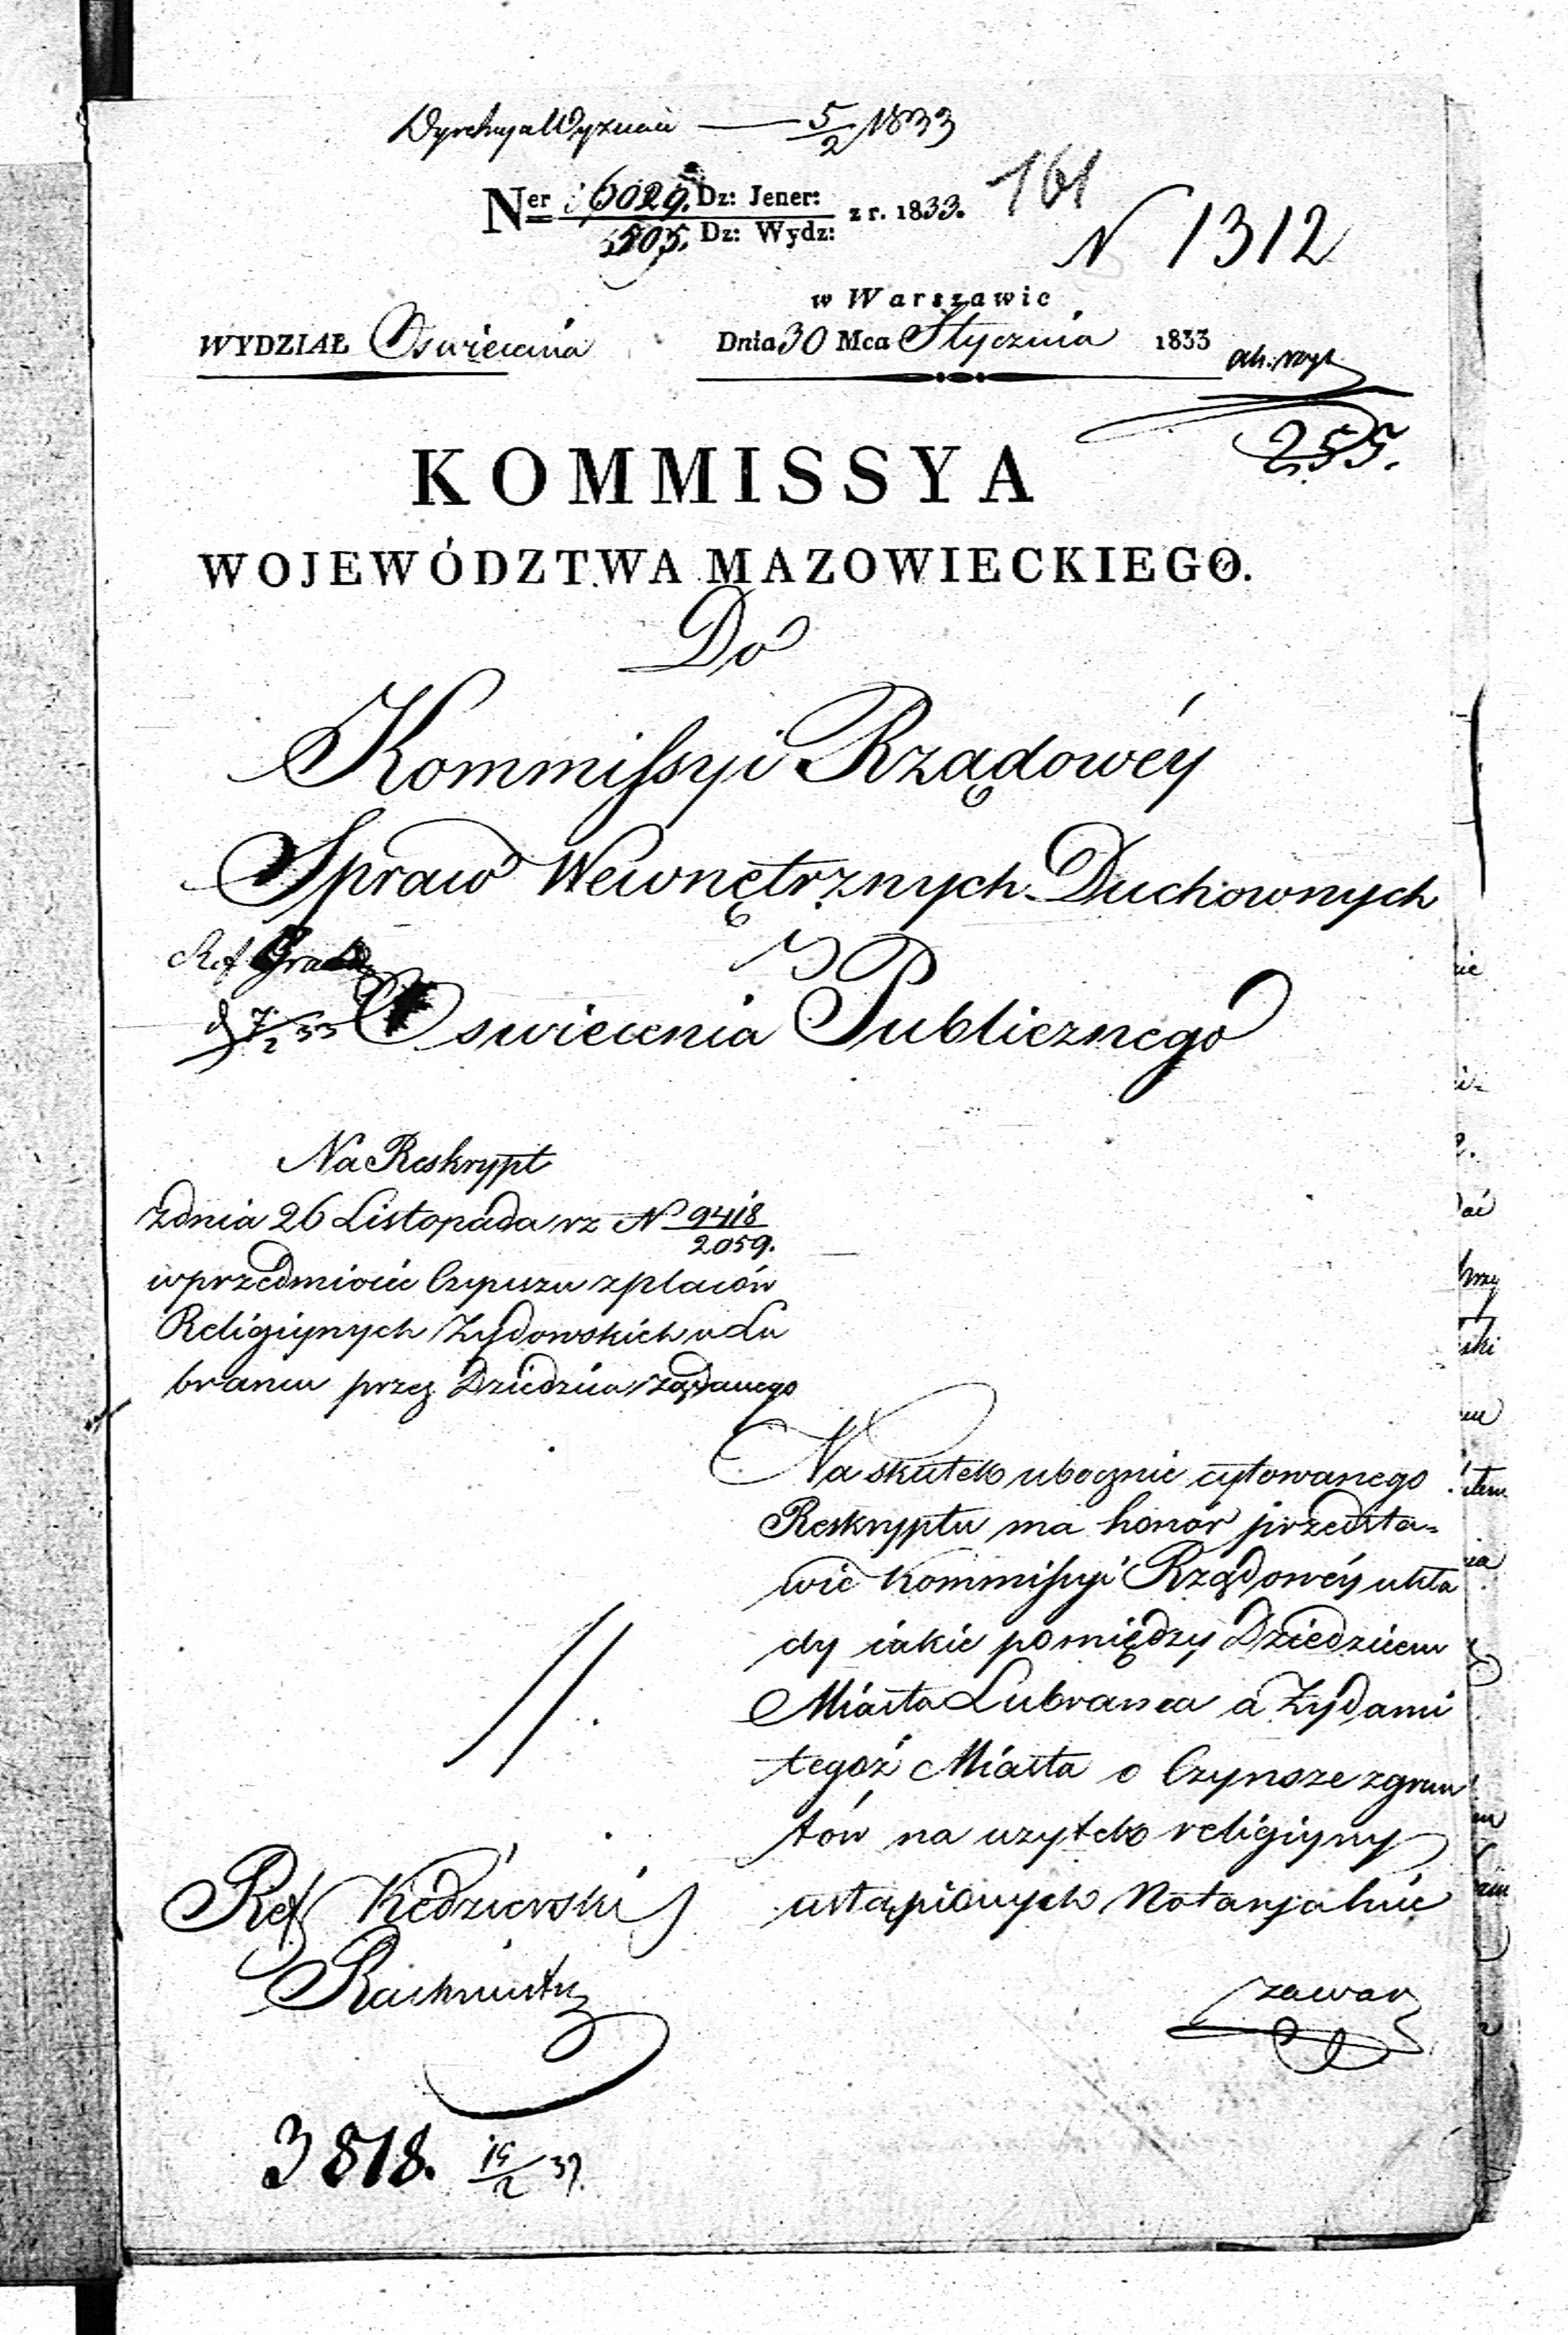 Dyrekcya Wyznań — 5/2 1833
Ner 6029. Dz: Jener:
505. Dz: Wydz:
z r. 1833.
161
N 1312
w Warszawie
WYDZIAŁ Oswiecenia
Dnia 30 Mca Stycznia 1833
255.
KOMMISSYA
WOJEWÓDZTWA MAZOWIECKIEGO.
Do
Kommissyi Rządowéy
Spraw Wewnętrznych Duchownych
i
Ref
d 7/2 33
Oswiecenia Publicznego
Na Reskrypt
z dnia 26 Listopada rz N 9418/2059.
w przedmiocie Czynszu z placów
Religiynych Żydowskich w Lu
brancu przez Dziedzica żądanego
Na skutek ubocznie cytowanego
Reskryptu ma honor przedsta-
wić Kommissyi Rządowéy ukła
dy iakie pomiędzy Dziedzicem
Miasta Lubranca a Żydami
tegoż Miasta o Czynsze z grun
tów na użytek religiyny
ustąpionych Notaryalnie
zawar
Ref Kędzierski
Rachmistrz
3818.